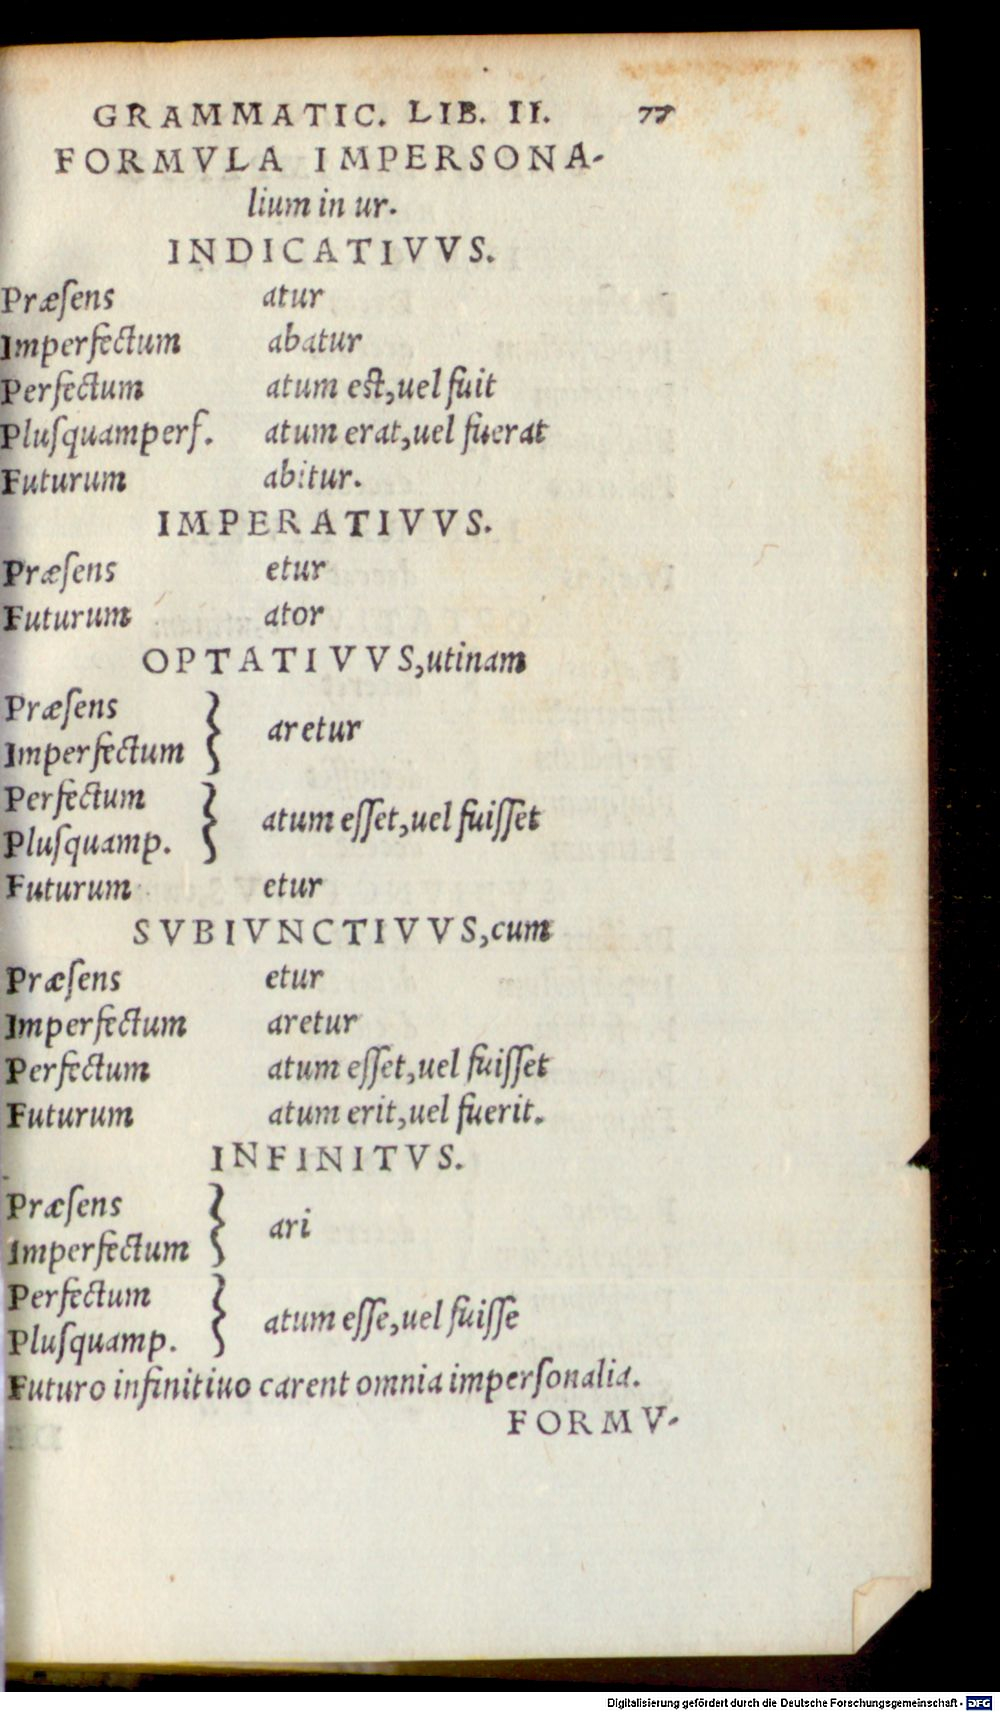 GRAMMATIC. LIB. II. 77
FORMVLA IMPERSONA-
lium in ur.
INDICATIVVS.
Præſens atur
Imperfectum abatur
Perfectum atum est,uel fuit
Pluſquamperf. atum erat,uel fuerat
Futurum abitur.
IMPERATIVVS.
Præſens etur
Futurum ator
OPTATIVVS,utinam
Præſens
Imperfectum } aretur
Perfectum
Pluſquamp. } atum eſſet,uel fuiſſet
Futurum etur
SVBIVNCTIVVS,cum
Præſens etur
Imperfectum aretur
Perfectum atum eſſet,uel fuiſſet
Futurum atum erit,uel fuerit.
INFINITVS.
Præſens
Imperfectum } ari
Perfectum
Pluſquamp. } atum eſſe,uel fuiſſe
Futuro infinitiuo carent omnia imperſonalia.
FORMV-
Digitalisierung gefördert durch die Deutsche Forschungsgemeinschaft - DFG